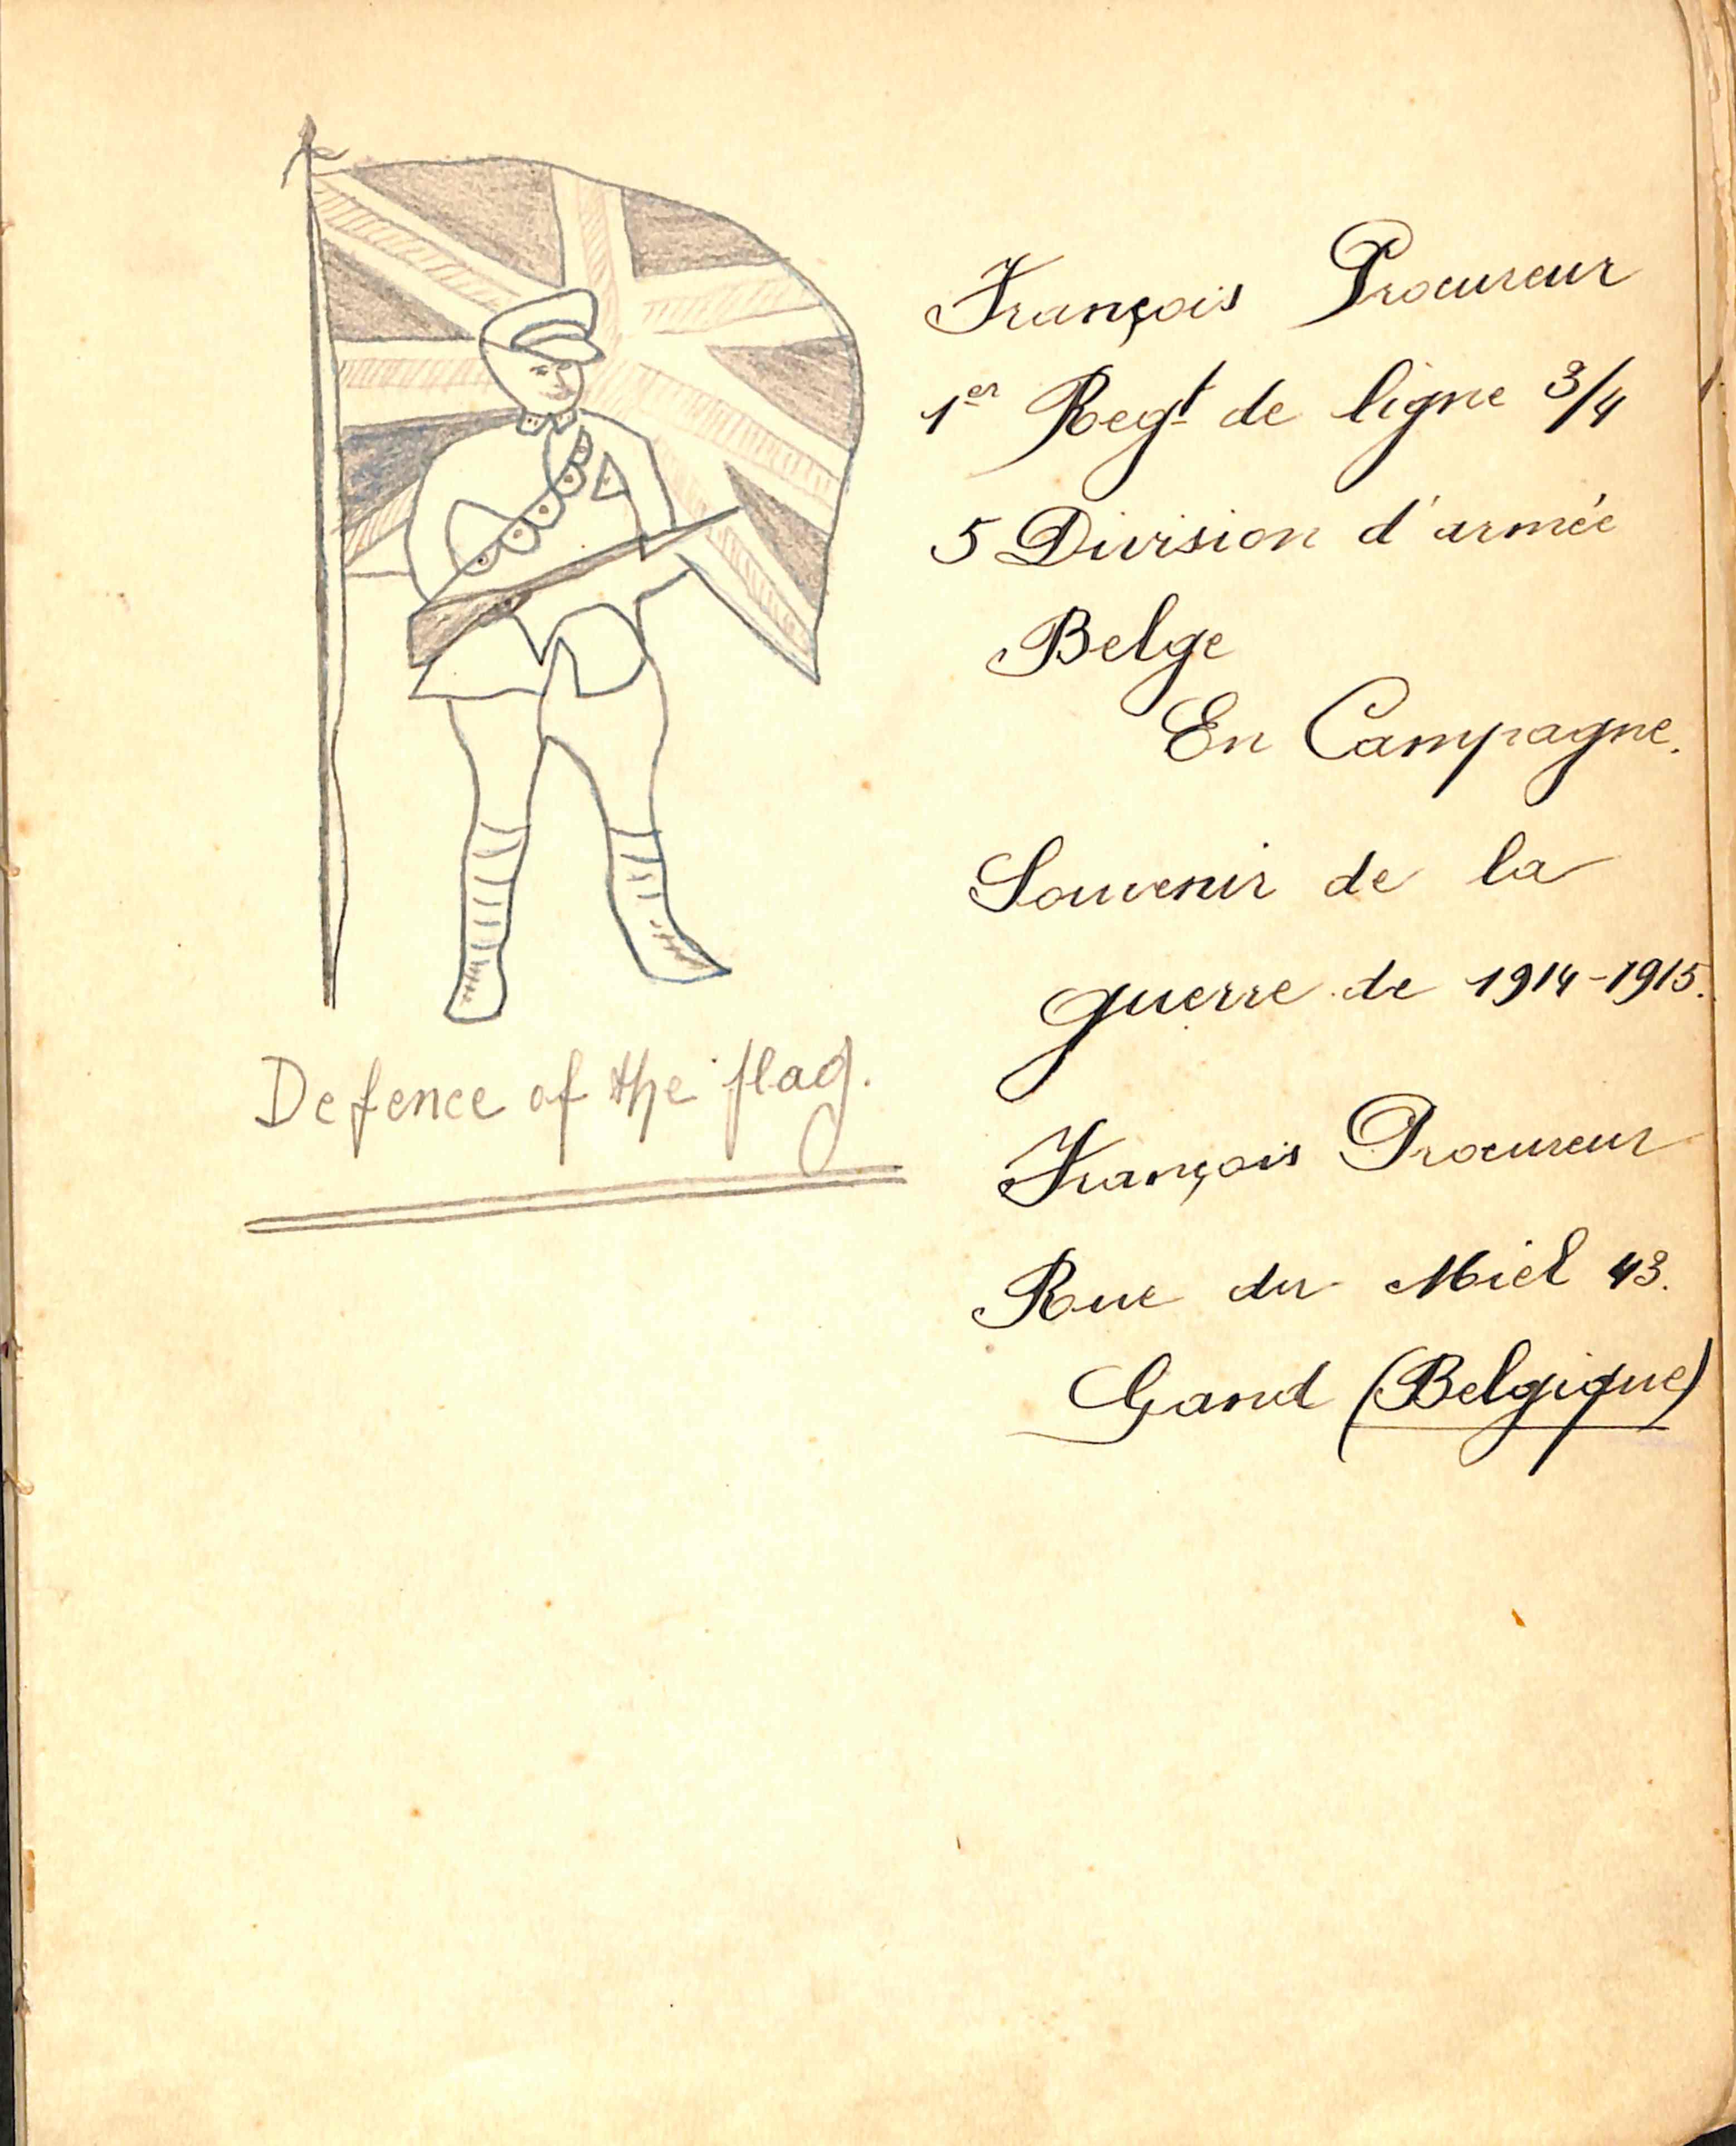 François Procureur
1er Regt de ligne 3/4
5 Division d'armée
Belge
En Campagne.
Souvenir de la
guerre de 1914-1915.
François Procureur
Rue du Miel 43.
Gand (Belgique)
Defence of the flag.